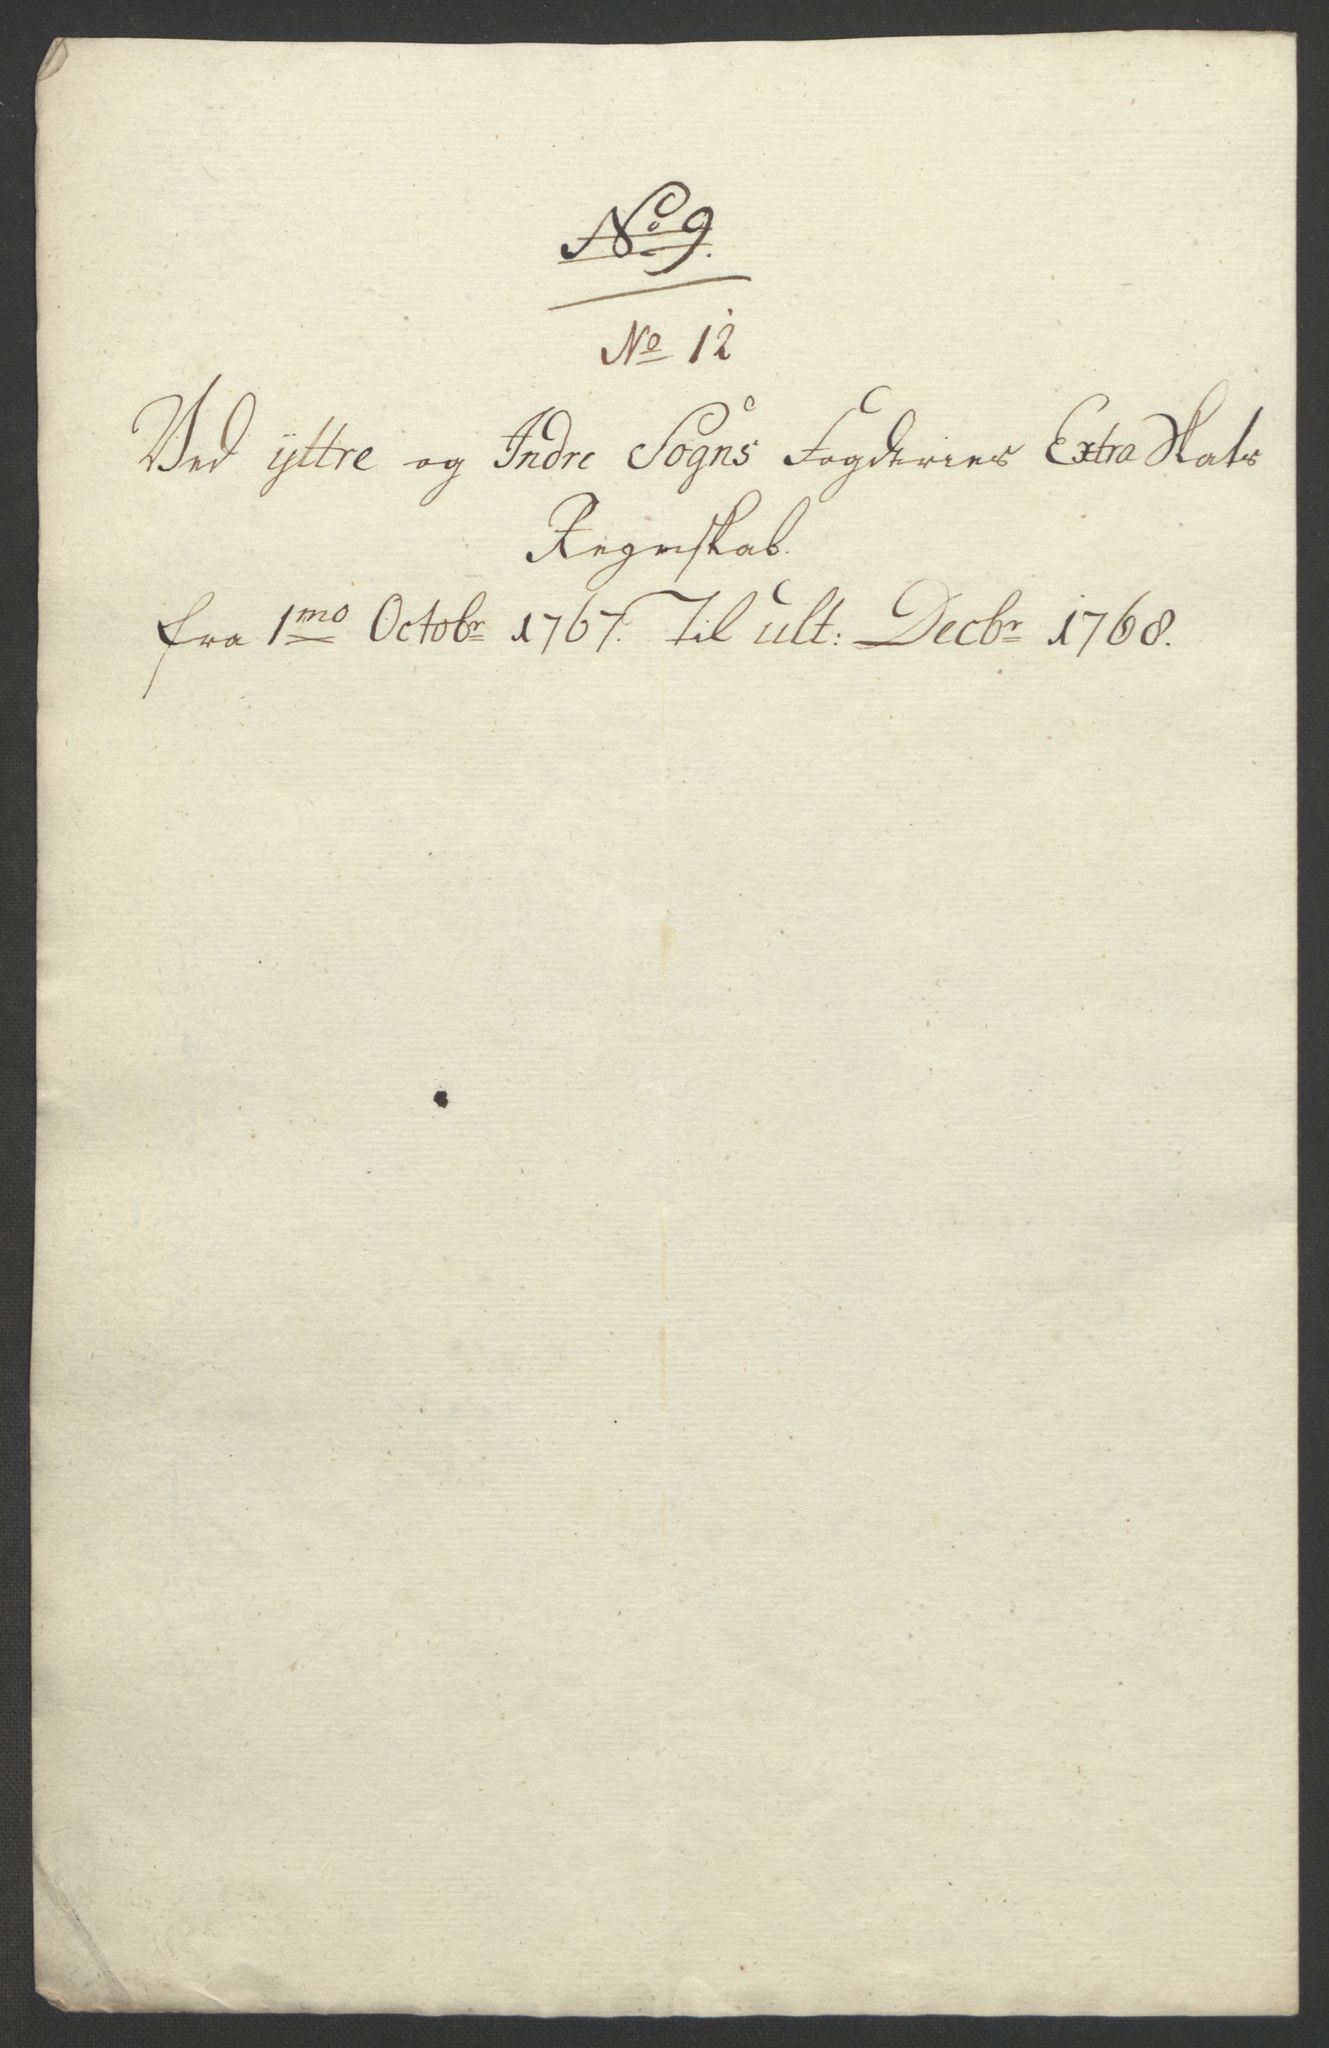 No 9.
No 12
Ved yttre og Indre Sogns Fogderies Extra Skats
Regnskab.
fra 1mo Octobr 1767. Til ult: Decbr 1768.